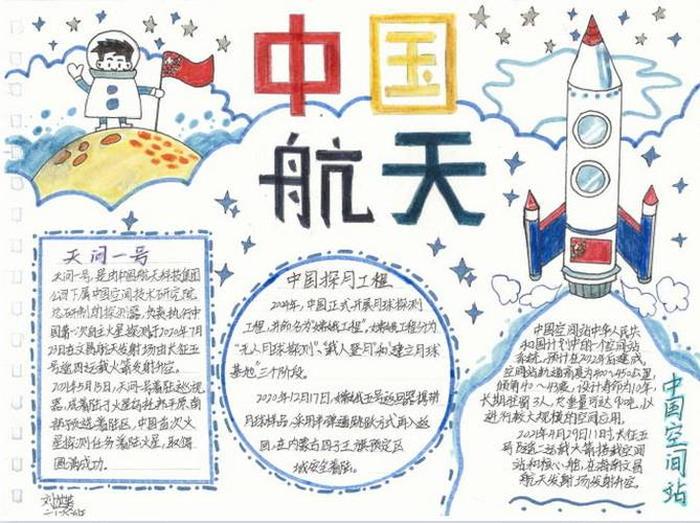 中国
航天
天问一号
天问一号,是由中国航天科技集团
公司下属中国空间技术研究院
总研制的探测器,负责执行中
国第一次自主火星探测于2020年7月
23日在文昌航天发射场由长征五
号遥四运载火箭发射升空。
2021年5月15日,天问一号着陆巡视
器,成着陆于火星乌托邦平原南
部预选着陆区,中国首次火
星探测任务着陆火星,取得
圆满成功。
中国探月工程
2004年,中国正式开展月球探测
工程,并命名为“嫦娥工程”,嫦娥工程分为
“无人月球探测”、“载人登月”和“建立月球
基地”三个阶段。
2020年12月17日,嫦娥五号返回器携带
月球样品,采用半弹道跳跃方式再入返
回,在内蒙古四子王旗预定区
域安全着陆。
中国空间站中华人民共
和国计划中的一个空间站
系统,预计在2022年后建成,
空间站轨道高度为400~450公里,
倾角42~43度,设计寿命为10年,
长期驻留3人,总重量可达90吨,以
进行较大规模的空间应用。
2021年4月29日11时,长征五
号B遥二运载火箭搭载空间
站天和核心舱,在海南文昌
航天发射场发射升空。
中国空间站